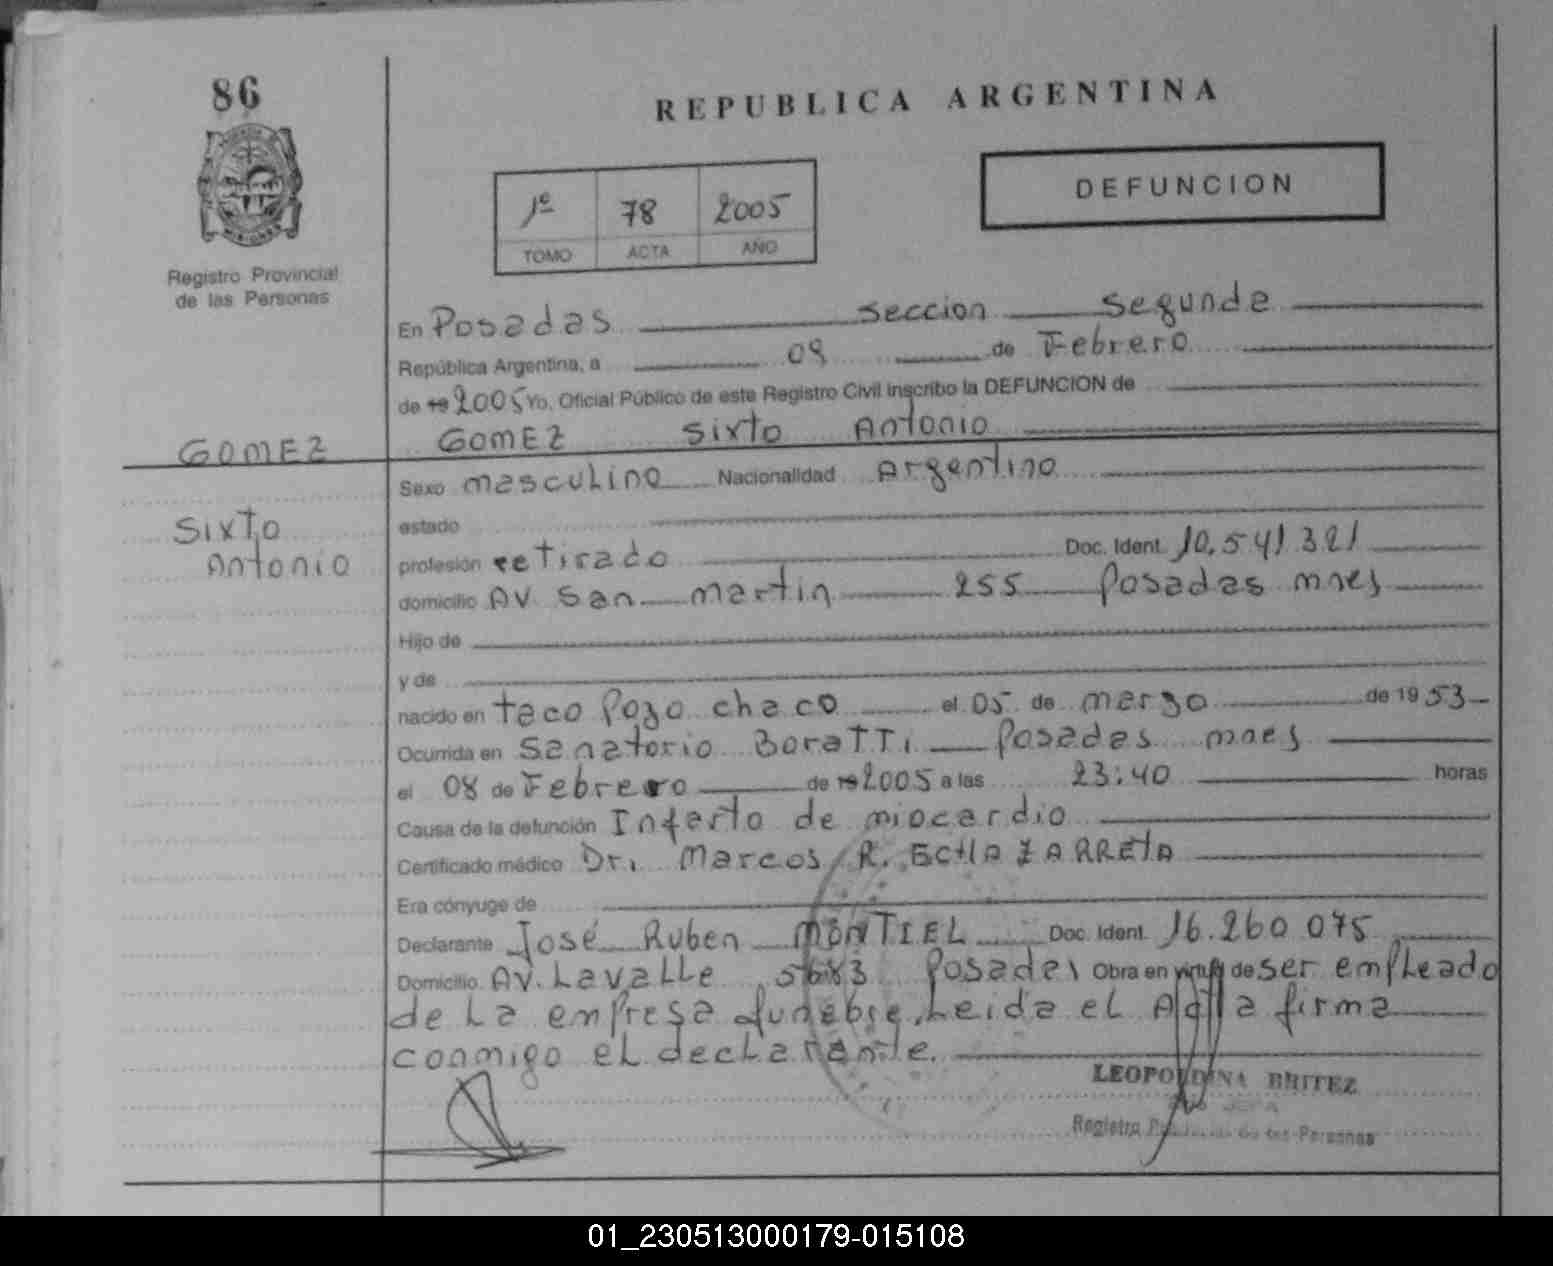 86
REPUBLICA ARGENTINA
DEFUNCION
1º 78 2005
TOMO ACTA AÑO
Registro Provincial
de las Personas
En Posadas seccion segunda
República Argentina, a 09 de Febrero
de 19 2005 Yo, Oficial Público de este Registro Civil inscribo la DEFUNCION de
GOMEZ
GOMEZ Sixto Antonio
Sexo masculino Nacionalidad Argentino
Sixto
Antonio
estado
profesión retirado Doc. Ident. 10.541.321
domicilio AV. San martin 255 Posadas mnes
Hijo de
y de
nacido en taco Pozo chaco el 05 de marzo de 1953
Ocurrida en Sanatorio BoraTTi Posadas mnes
el 08 de Febrero de 19 2005 a las 23:40 horas
Causa de la defunción Infarto de miocardio
Certificado médico Dr. Marcos R. ECHAZARRETA
Era cónyuge de
Declarante José Ruben MONTIEL Doc. Ident. 16.260.075
Domicilio AV. Lavalle 5683 Posadas Obra en virtud de ser empleado
de La empresa funebre. Leida el Acta firma
conmigo el declarante.
LEOPOLDINA BRITEZ
JEFA
Registro Provincial de las Personas
01_230513000179-015108